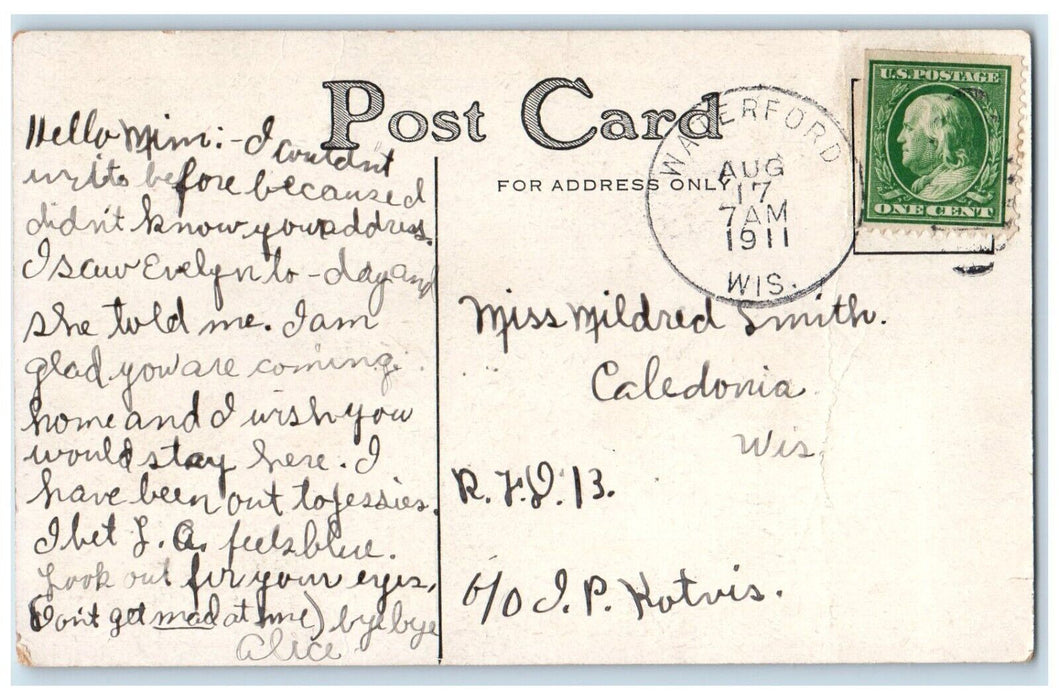 Post Card
FOR ADDRESS ONLY
WATERFORD
AUG
17
7AM
1911
WIS.
U.S. POSTAGE
ONE CENT
Hello Mim:- I couldn't
write before because I
didn't know your address.
I saw Evelyn to-day and
she told me. I am
glad you are coming
home and I wish you
would stay here. I
have been out to Jessies.
I bet L. A. feels blue.
Look out for your eyes,
(Don't get mad at me) bye bye
Alice
Miss Mildred Smith.
Caledonia
Wis
R.F.D. 13.
c/o I. P. Kotvis.